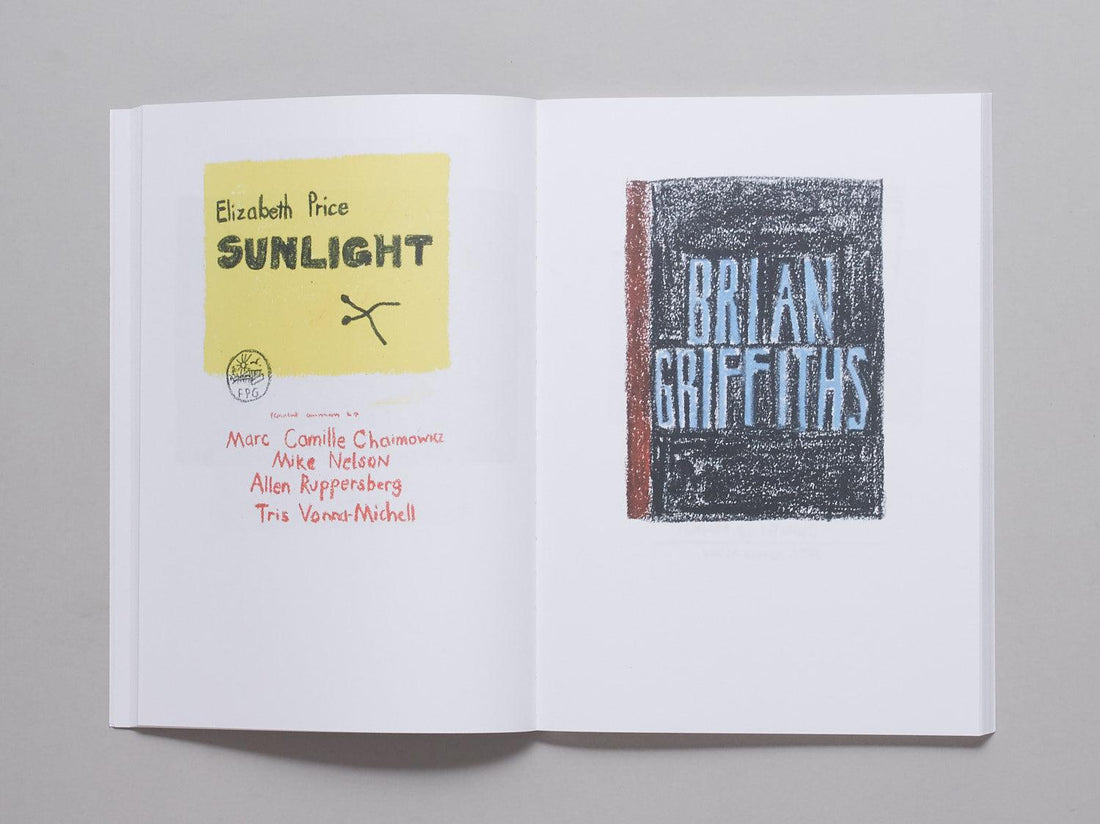 Elizabeth Price
SUNLIGHT
FPG
Marc Camille Chaimowicz
Mike Nelson
Allen Ruppersberg
Tris Vonna-Michell
BRIAN
GRIFFITHS